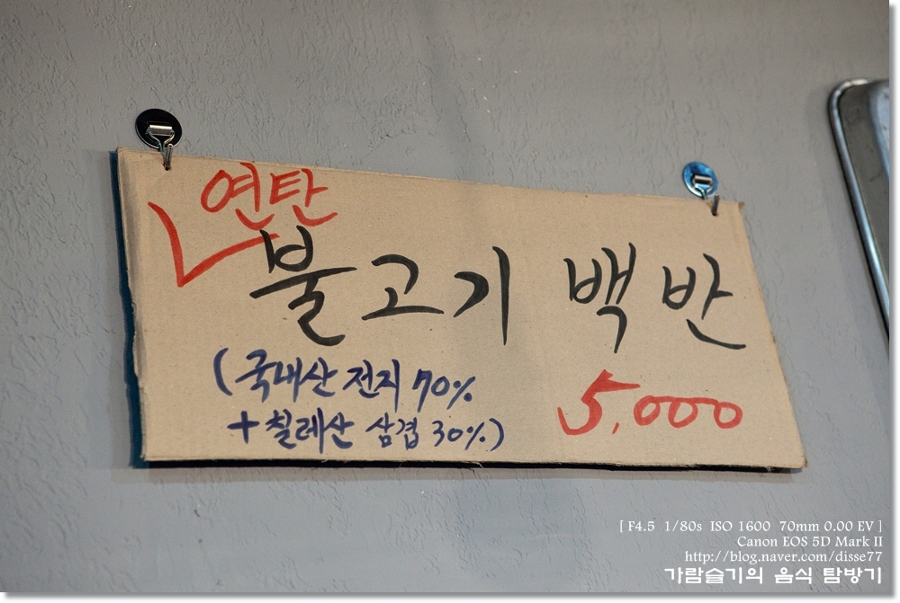 연탄
불고기 백반
(국내산 전지 70%
+ 칠레산 삼겹 30%)
5,000
[ F4.5 1/80s ISO 1600 70mm 0.00 EV ]
Canon EOS 5D Mark II
http://blog.naver.com/disse77
가람슬기의 음식 탐방기